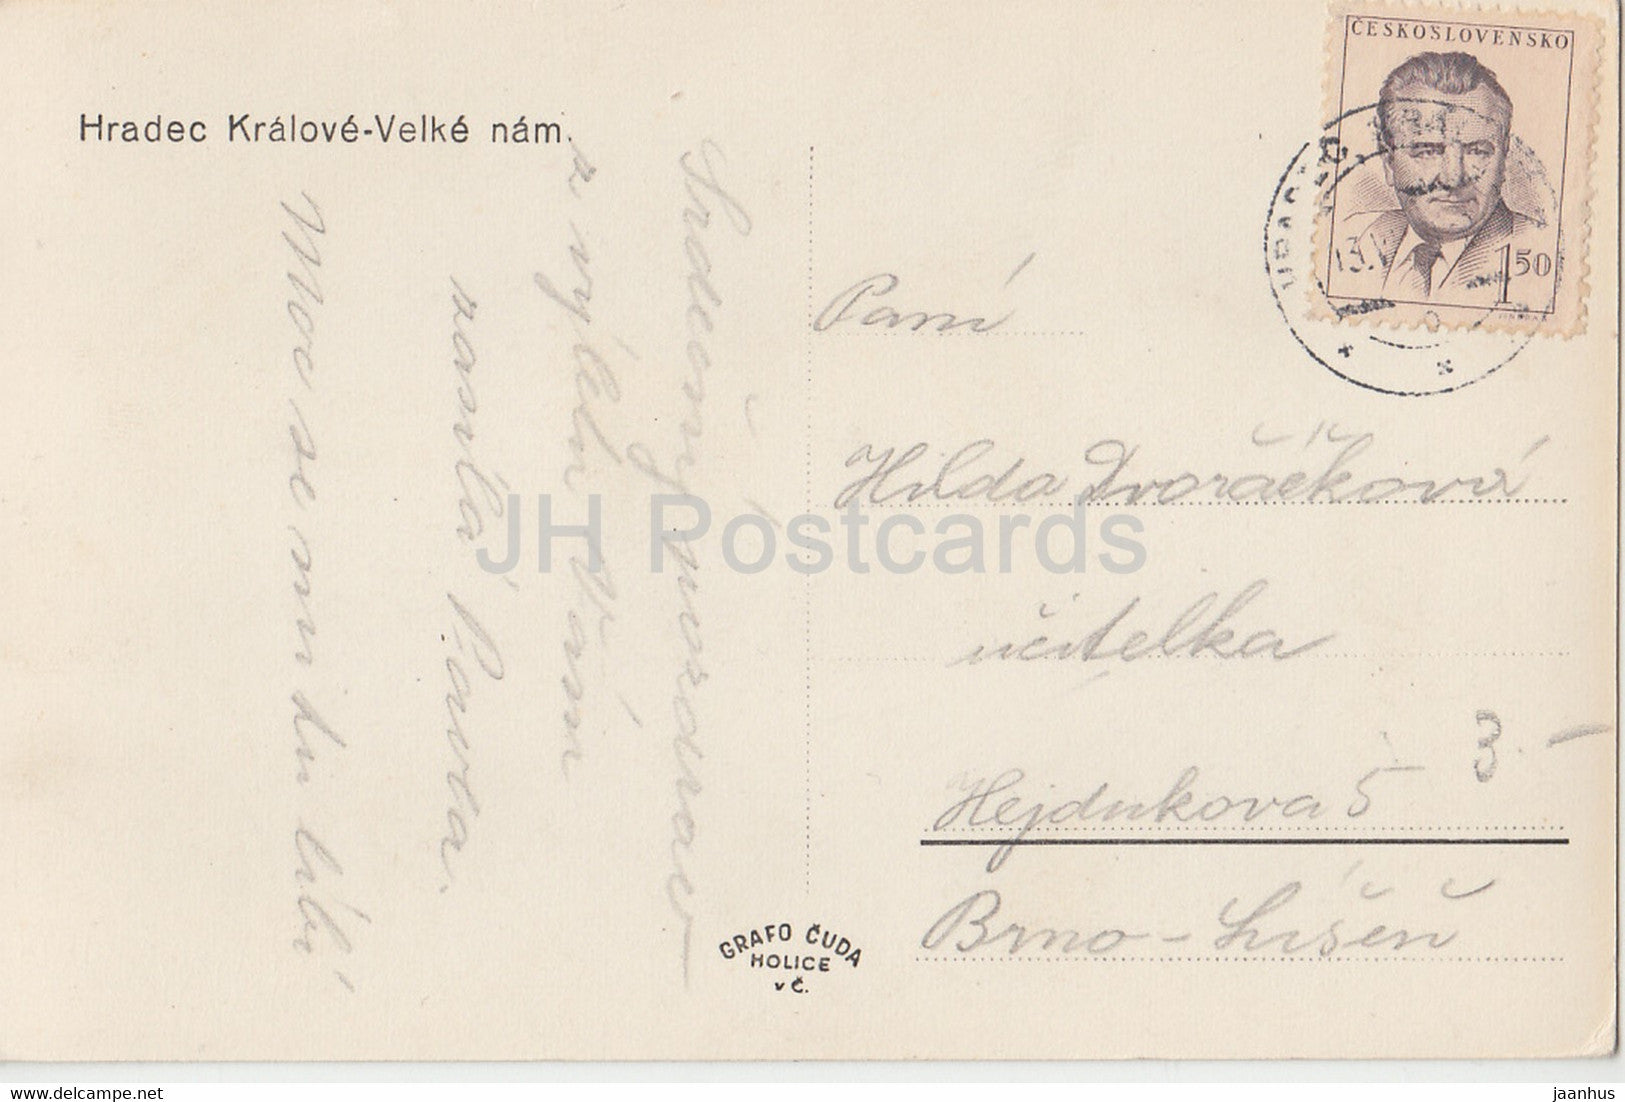 Hradec Králové-Velké nám.
Srdečný pozdrav
z výletu Vám
zasílá Pavla.
Moc se mi tu líbí
Paní
Hilda Dvořáčková
učitelka
Hejdukova 5
3.-
Brno-Líšeň
GRAFO ČUDA
HOLICE
v Č.
ČESKOSLOVENSKO
1 50
HRADEC KRÁL
13.V
JH Postcards
delcampe.net
jaanhus